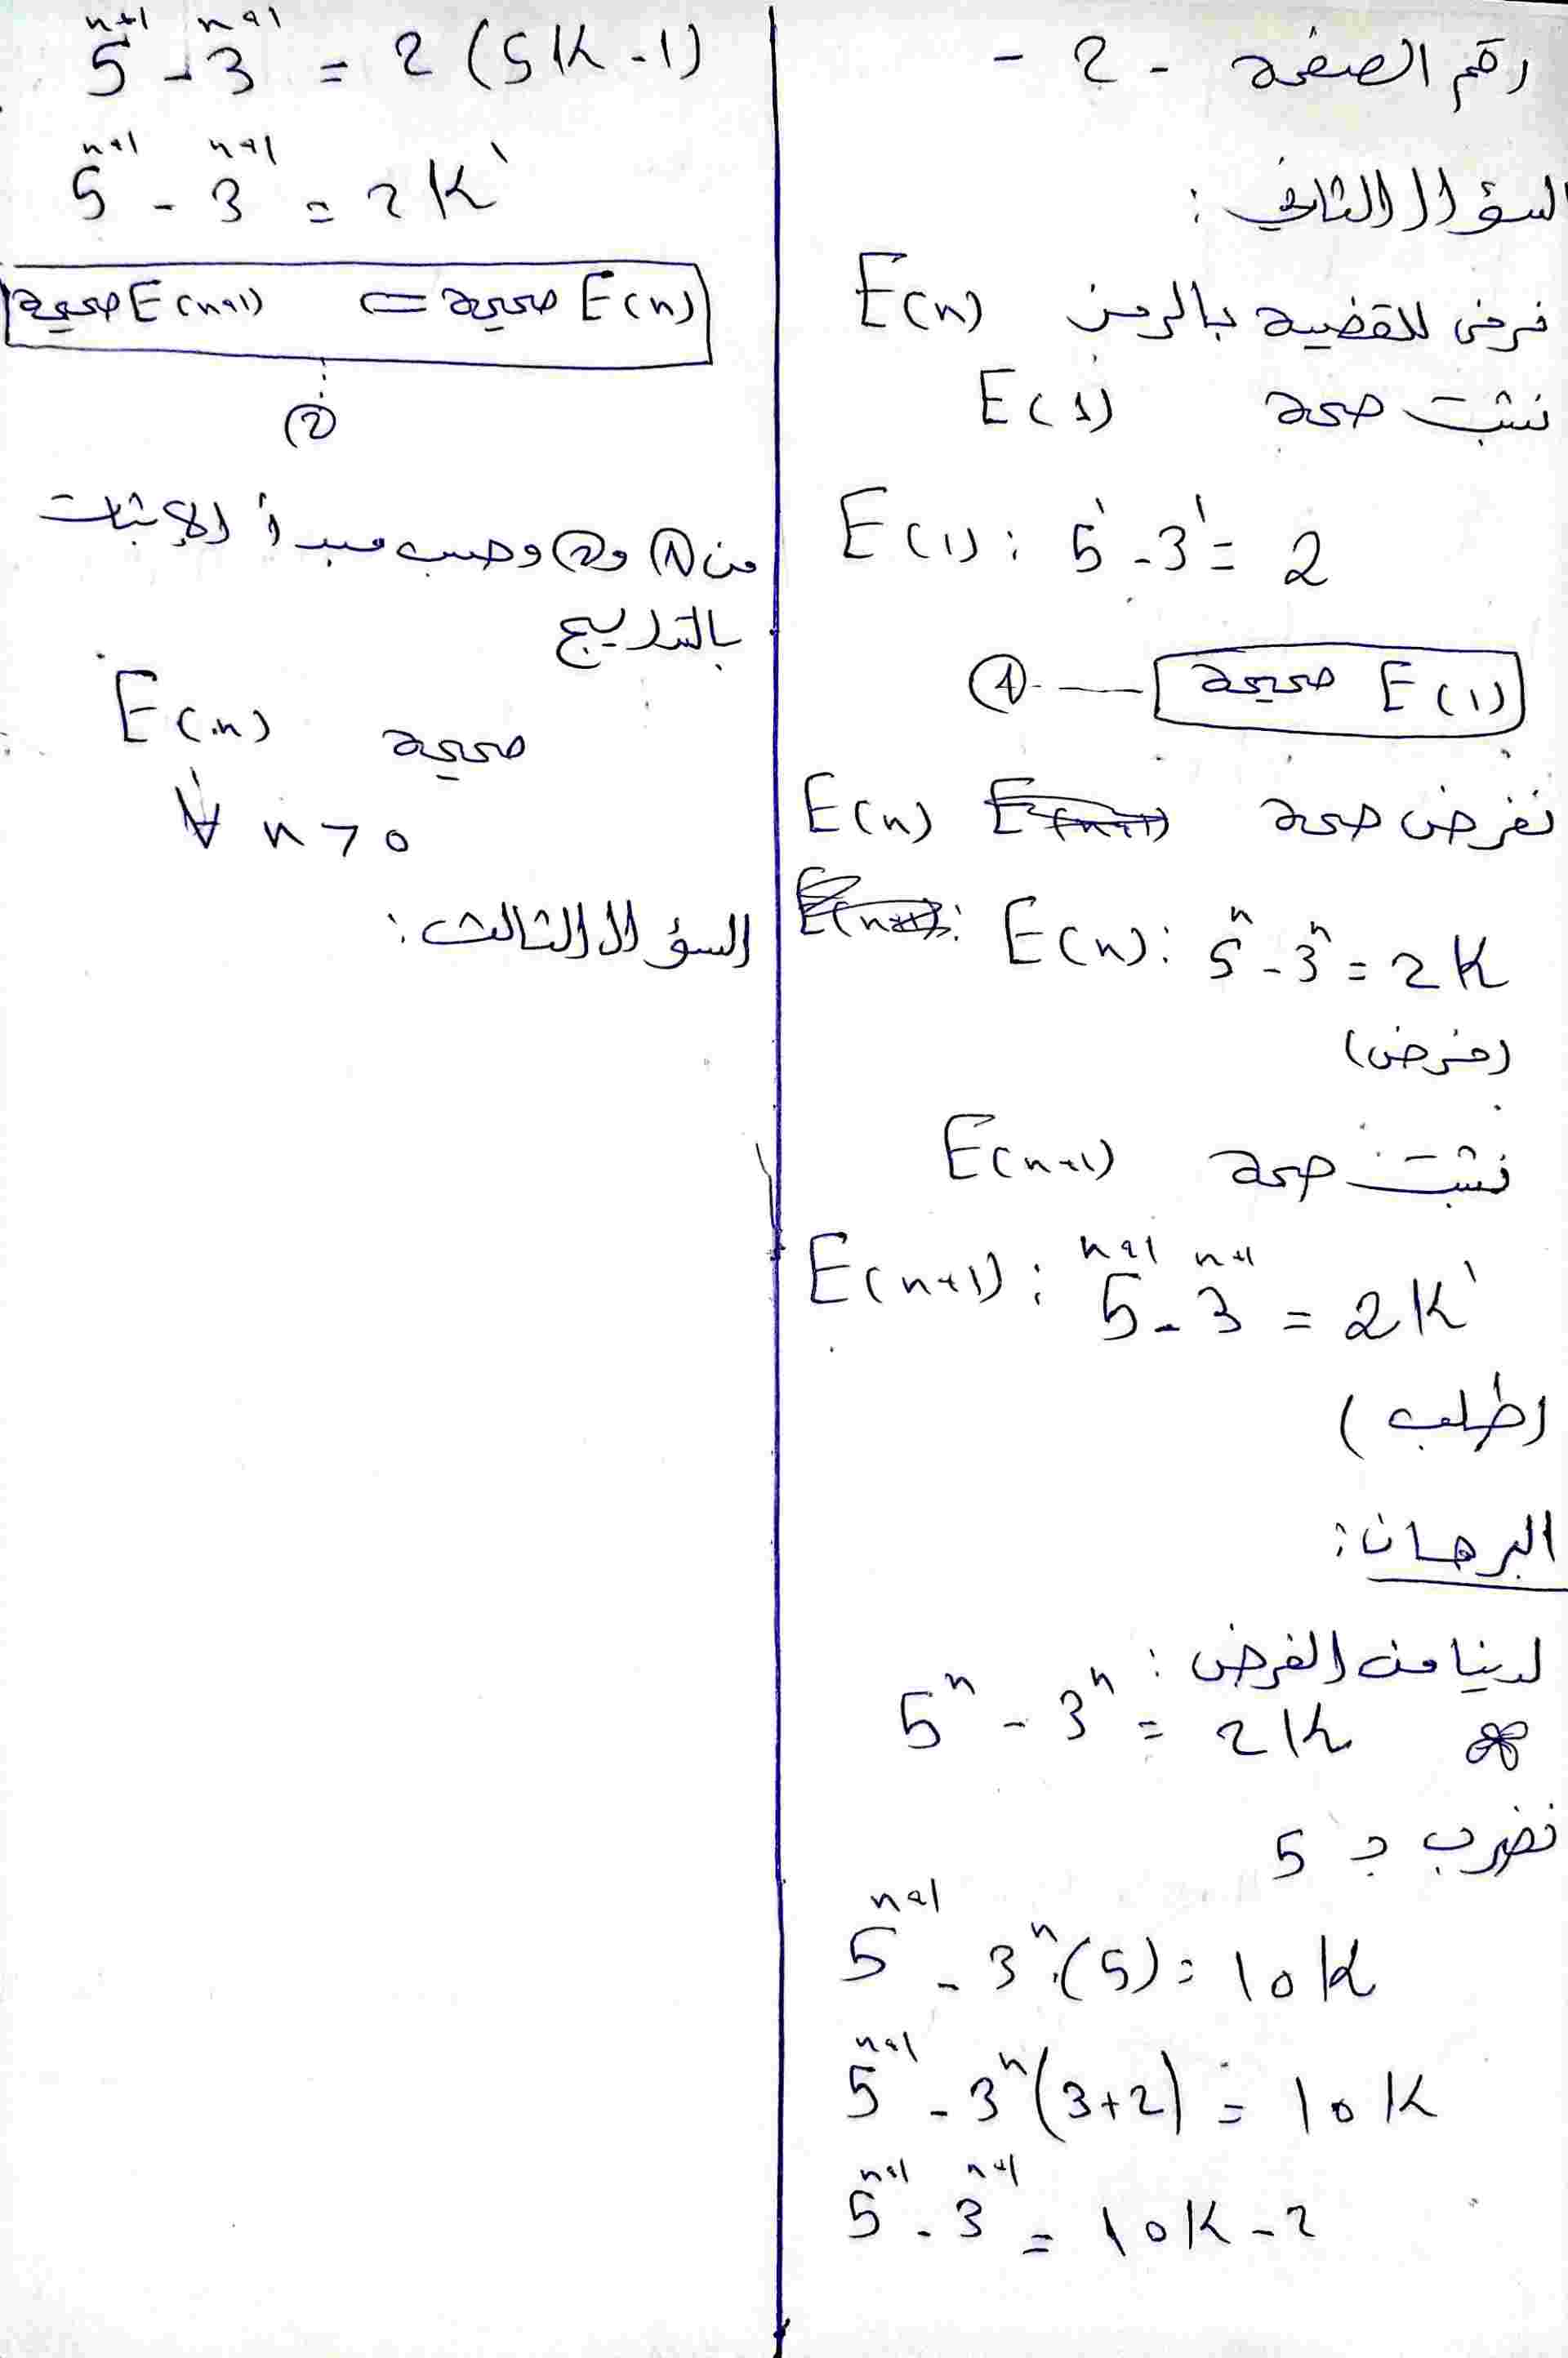 رقم الصفحة - 2 -
السؤال الثاني :
نرمز للقضية بالرمز E(n)
نثبت صحة E(1)
E(1): 5¹ - 3¹ = 2
E(1) صحيحة —— ①
نفرض صحة E(n)
E(n): 5ⁿ - 3ⁿ = 2K
(فرض)
نثبت صحة E(n+1)
E(n+1): 5ⁿ⁺¹ - 3ⁿ⁺¹ = 2K'
(طلب)
البرهان:
لدينا من الفرض :
5ⁿ - 3ⁿ = 2K
نضرب بـ 5
5ⁿ⁺¹ - 3ⁿ.(5) = 10K
5ⁿ⁺¹ - 3ⁿ(3+2) = 10K
5ⁿ⁺¹ - 3ⁿ⁺¹ = 10K - 2
5ⁿ⁺¹ - 3ⁿ⁺¹ = 2(5K-1)
5ⁿ⁺¹ - 3ⁿ⁺¹ = 2K'
E(n) صحيحة ⇐ E(n+1) صحيحة
②
من ① و ② وحسب مبدأ الإثبات
بالتدريج
E(n) صحيحة
∀ n > 0
السؤال الثالث: